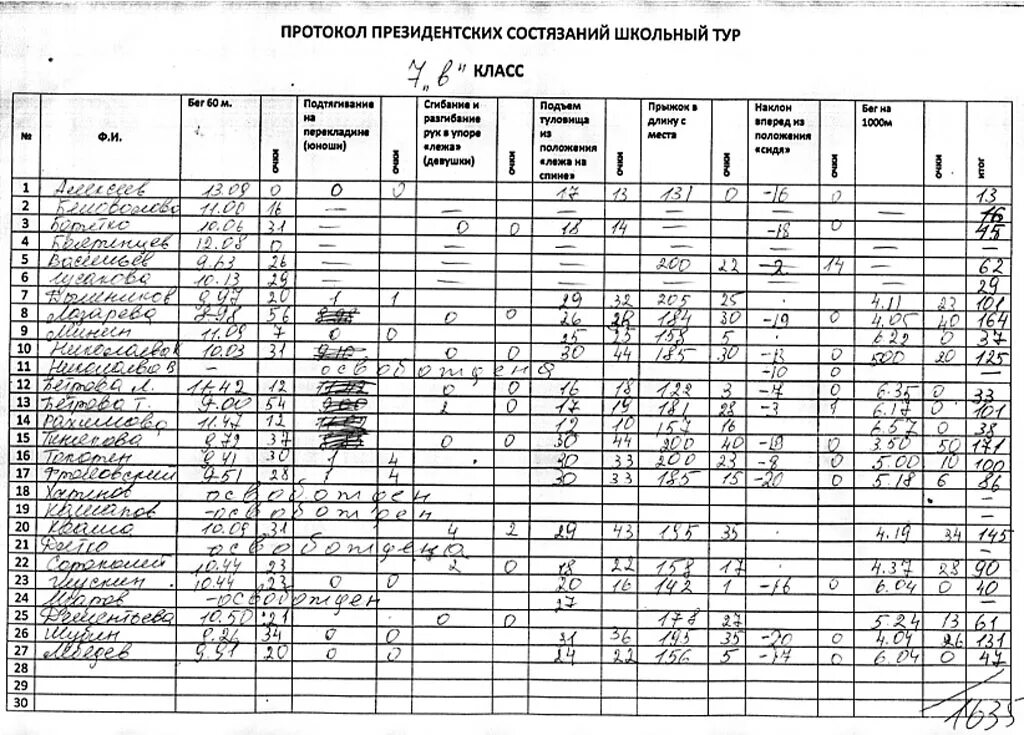 ПРОТОКОЛ ПРЕЗИДЕНТСКИХ СОСТЯЗАНИЙ ШКОЛЬНЫЙ ТУР
7 „в" КЛАСС
№ Ф.И. Бег 60 м. очки Подтягивание на перекладине (юноши) очки Сгибание и разгибание рук в упоре «лежа» (девушки) очки Подъем туловища из положения «лежа на спине» очки Прыжок в длину с места очки Наклон вперед из положения «сидя» очки Бег на 1000м очки итог
1 Алексеев 13.09 0 0 0 17 13 131 0 -16 0 13
2 11.00 16 — — — — — —
3 10.06 31 — 0 0 18 14 — -18 0 45
4 12.08 0 — — — — — — —
5 Васильев 9.63 26 — — — 200 22 -2 14 — 62
6 Гусакова 10.13 29 — — — — — — 29
7 9.97 20 1 1 29 32 205 25 4.11 23 101
8 Лазарева 8.98 56 0 0 26 28 184 30 -19 0 4.05 40 164
9 Минин 11.09 7 0 0 25 25 158 5 6.22 0 37
10 10.03 31 0 0 30 44 185 30 0 500 20 125
11 — освобождена -10 0 —
12 Петрова Л. 11.42 12 0 0 16 18 122 3 -7 0 6.35 0 33
13 Петрова Т. 9.00 54 2 0 17 19 181 28 -3 6.17 0 101
14 Рахимова 11.47 12 12 10 157 16 6.57 0 38
15 9.79 37 0 0 30 44 200 40 -19 0 3.50 50 171
16 9.41 30 1 4 30 33 200 23 -8 0 5.00 10 100
17 9.51 28 4 30 33 185 15 -20 0 5.18 6 86
18 освобожден —
19 -освобожден —
20 10.09 31 4 2 29 43 195 35 4.19 34 145
21 освобождена —
22 10.44 23 2 0 18 22 158 17 4.37 28 90
23 10.44 23 0 0 20 16 142 1 -16 0 6.04 0 40
24 -освобожден 27 —
25 Дементьева 10.50 21 0 0 178 27 5.24 13 61
26 Шубин 9.26 34 0 0 31 36 195 35 -20 0 4.04 26 131
27 Лебедев 9.91 20 0 0 24 22 156 5 -17 0 6.04 0 47
28
29
30
1635